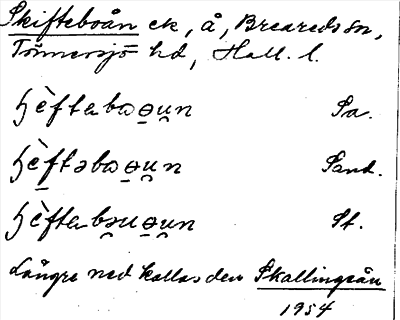 Skifteboån ek, å, Breareds sn,
Tönnersjö hd, Hall. l.
ɧèftabɷo̤u̯n Sa.
ɧèftəbɷo̤u̯n Sand.
ɧèftabəuo̤u̯n St.
Längre ned kallas den Skallingsån
1954